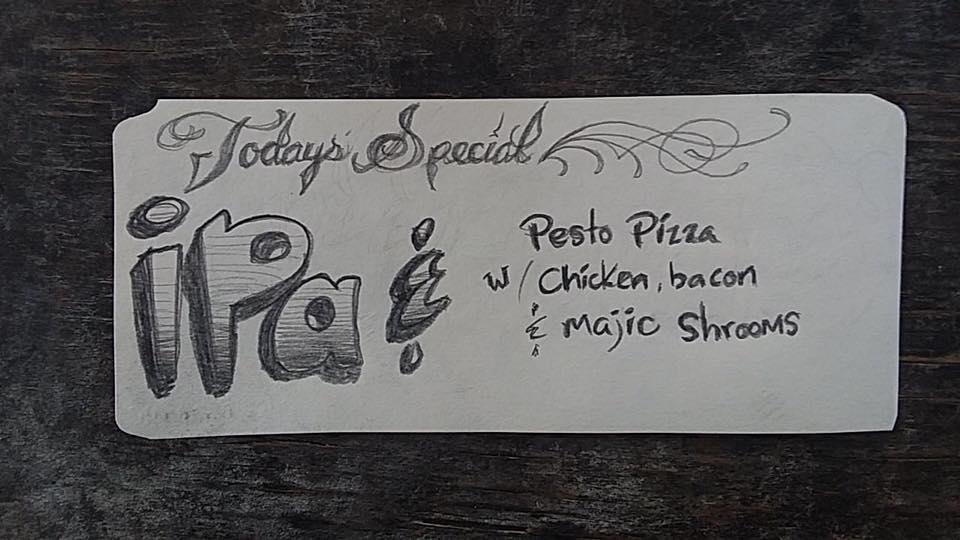 Todays Special
iPa &
Pesto Pizza
w/ Chicken, bacon
& Majic Shrooms